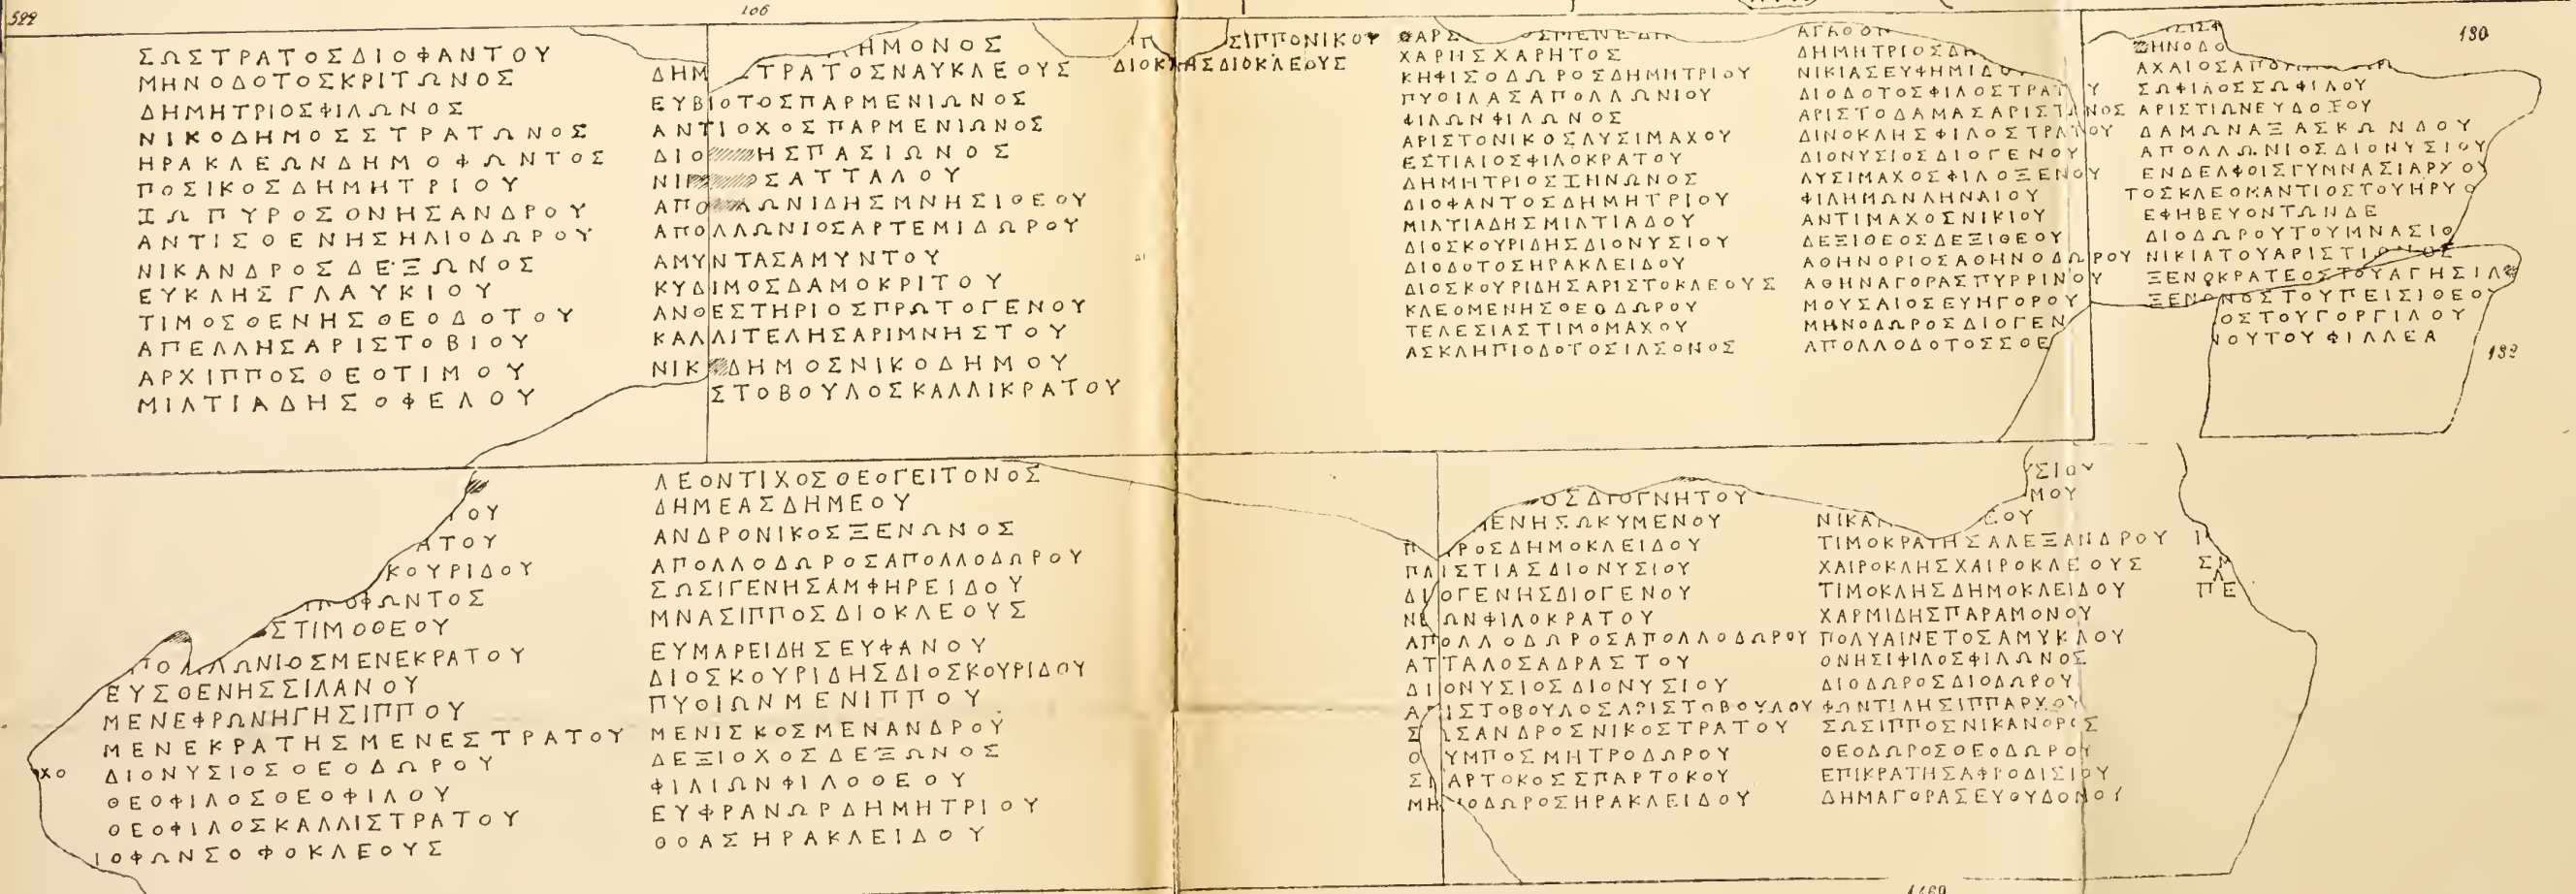 522
106
130
ΣΩΣΤΡΑΤΟΣΔΙΟΦΑΝΤΟΥ
ΜΗΝΟΔΟΤΟΣΚΡΙΤΩΝΟΣ
ΔΗΜΗΤΡΙΟΣΦΙΛΩΝΟΣ
ΝΙΚΟΔΗΜΟΣΣΤΡΑΤΩΝΟΣ
ΗΡΑΚΛΕΩΝΔΗΜΟΦΩΝΤΟΣ
ΠΟΣΙΚΟΣΔΗΜΗΤΡΙΟΥ
ΖΩΠΥΡΟΣΟΝΗΣΑΝΔΡΟΥ
ΑΝΤΙΣΘΕΝΗΣΗΛΙΟΔΩΡΟΥ
ΝΙΚΑΝΔΡΟΣΔΕΞΩΝΟΣ
ΕΥΚΛΗΣΓΛΑΥΚΙΟΥ
ΤΙΜΟΣΘΕΝΗΣΘΕΟΔΟΤΟΥ
ΑΠΕΛΛΗΣΑΡΙΣΤΟΒΙΟΥ
ΑΡΧΙΠΠΟΣΘΕΟΤΙΜΟΥ
ΜΙΛΤΙΑΔΗΣΟΦΕΛΟΥ
ΗΜΟΝΟΣ
ΔΗΜ ΤΡΑΤΟΣΝΑΥΚΛΕΟΥΣ
ΕΥΒΙΟΤΟΣΠΑΡΜΕΝΙΩΝΟΣ
ΑΝΤΙΟΧΟΣΠΑΡΜΕΝΙΩΝΟΣ
ΔΙΟ ΗΣΠΑΣΙΩΝΟΣ
ΝΙΚ ΟΣΑΤΤΑΛΟΥ
ΑΠΟ ΩΝΙΔΗΣΜΝΗΣΙΘΕΟΥ
ΑΠΟΛΛΩΝΙΟΣΑΡΤΕΜΙΔΩΡΟΥ
ΑΜΥΝΤΑΣΑΜΥΝΤΟΥ
ΚΥΔΙΜΟΣΔΑΜΟΚΡΙΤΟΥ
ΑΝΘΕΣΤΗΡΙΟΣΠΡΩΤΟΓΕΝΟΥ
ΚΑΛΛΙΤΕΛΗΣΑΡΙΜΝΗΣΤΟΥ
ΝΙΚ ΔΗΜΟΣΝΙΚΟΔΗΜΟΥ
ΣΤΟΒΟΥΛΟΣΚΑΛΛΙΚΡΑΤΟΥ
ΙΠ ΣΙΠΠΟΝΙΚΟΥ
ΔΙΟΚΛΗΣΔΙΟΚΛΕΟΥΣ
ΧΑΡΗΣΧΑΡΗΤΟΣ
ΚΗΦΙΣΟΔΩΡΟΣΔΗΜΗΤΡΙΟΥ
ΠΥΘΙΛΑΣΑΠΟΛΛΩΝΙΟΥ
ΦΙΛΩΝΦΙΛΩΝΟΣ
ΑΡΙΣΤΟΝΙΚΟΣΛΥΣΙΜΑΧΟΥ
ΕΣΤΙΑΙΟΣΦΙΛΟΚΡΑΤΟΥ
ΔΗΜΗΤΡΙΟΣΖΗΝΩΝΟΣ
ΔΙΟΦΑΝΤΟΣΔΗΜΗΤΡΙΟΥ
ΜΙΛΤΙΑΔΗΣΜΙΛΤΙΑΔΟΥ
ΔΙΟΣΚΟΥΡΙΔΗΣΔΙΟΝΥΣΙΟΥ
ΔΙΟΔΟΤΟΣΗΡΑΚΛΕΙΔΟΥ
ΔΙΟΣΚΟΥΡΙΔΗΣΑΡΙΣΤΟΚΛΕΟΥΣ
ΚΛΕΟΜΕΝΗΣΘΕΟΔΩΡΟΥ
ΤΕΛΕΣΙΑΣΤΙΜΟΜΑΧΟΥ
ΑΣΚΛΗΠΙΟΔΟΤΟΣΙΑΣΟΝΟΣ
ΑΓΑΘΟ
ΔΗΜΗΤΡΙΟΣΔ
ΝΙΚΙΑΣΕΥΦΗΜΙΔΟΥ
ΔΙΟΔΟΤΟΣΦΙΛΟΣΤΡΑΤ Υ
ΑΡΙΣΤΟΔΑΜΑΣΑΡΙΣΤΩΝΟΣ
ΔΙΝΟΚΛΗΣΦΙΛΟΣΤΡΑΤΟΥ
ΔΙΟΝΥΣΙΟΣΔΙΟΓΕΝΟΥ
ΛΥΣΙΜΑΧΟΣΦΙΛΟΞΕΝΟΥ
ΦΙΛΗΜΩΝΛΗΝΑΙΟΥ
ΑΝΤΙΜΑΧΟΣΝΙΚΙΟΥ
ΔΕΞΙΘΕΟΣΔΕΞΙΘΕΟΥ
ΑΘΗΝΟΡΙΟΣΑΘΗΝΟΔΩΡΟΥ
ΑΘΗΝΑΓΟΡΑΣΠΥΡΡΙΝΟΥ
ΜΟΥΣΑΙΟΣΕΥΗΓΟΡΟΥ
ΜΗΝΟΔΩΡΟΣΔΙΟΓΕΝ
ΑΠΟΛΛΟΔΟΤΟΣΣΘΕ
ΖΗΝΟΔΟ
ΑΧΑΙΟΣΑΠΟ
ΣΩΦΙΛΟΣΣΩΦΙΛΟΥ
ΑΡΙΣΤΙΩΝΕΥΔΟΞΟΥ
ΔΑΜΩΝΑΞΑΣΚΩΝΔΟΥ
ΑΠΟΛΛΩΝΙΟΣΔΙΟΝΥΣΙΟΥ
ΕΝΔΕΛΦΟΙΣΓΥΜΝΑΣΙΑΡΧΟΥ
ΤΟΣΚΛΕΟΚΑΝΤΙΟΣΤΟΥΗΡΥΟ
ΕΦΗΒΕΥΟΝΤΩΝΔΕ
ΔΙΟΔΩΡΟΥΤΟΥΜΝΑΣΙΟ
ΝΙΚΙΑΤΟΥΑΡΙΣΤΙΩΝΟΣ
ΞΕΝΟΚΡΑΤΕΟΣΤΟΥΑΓΗΣΙΛ
ΞΕΝΩΝΟΣΤΟΥΠΕΙΣΙΘΕΟΥ
ΟΣΤΟΥΓΟΡΓΙΛΟΥ
ΝΟΥΤΟΥΦΙΛΛΕΑ
132
ΤΟΥ
ΑΤΟΥ
ΚΟΥΡΙΔΟΥ
ΟΦΩΝΤΟΣ
ΣΤΙΜΟΘΕΟΥ
ΠΟΛΛΩΝΙΟΣΜΕΝΕΚΡΑΤΟΥ
ΕΥΣΘΕΝΗΣΣΙΛΑΝΟΥ
ΜΕΝΕΦΡΩΝΗΓΗΣΙΠΠΟΥ
ΜΕΝΕΚΡΑΤΗΣΜΕΝΕΣΤΡΑΤΟΥ
ΧΟ ΔΙΟΝΥΣΙΟΣΘΕΟΔΩΡΟΥ
ΘΕΟΦΙΛΟΣΘΕΟΦΙΛΟΥ
ΘΕΟΦΙΛΟΣΚΑΛΛΙΣΤΡΑΤΟΥ
ΙΟΦΩΝΣΟΦΟΚΛΕΟΥΣ
ΛΕΟΝΤΙΧΟΣΘΕΟΓΕΙΤΟΝΟΣ
ΔΗΜΕΑΣΔΗΜΕΟΥ
ΑΝΔΡΟΝΙΚΟΣΞΕΝΩΝΟΣ
ΑΠΟΛΛΟΔΩΡΟΣΑΠΟΛΛΟΔΩΡΟΥ
ΣΩΣΙΓΕΝΗΣΑΜΦΗΡΕΙΔΟΥ
ΜΝΑΣΙΠΠΟΣΔΙΟΚΛΕΟΥΣ
ΕΥΜΑΡΕΙΔΗΣΕΥΦΑΝΟΥ
ΔΙΟΣΚΟΥΡΙΔΗΣΔΙΟΣΚΟΥΡΙΔΟΥ
ΠΥΘΙΩΝΜΕΝΙΠΠΟΥ
ΜΕΝΙΣΚΟΣΜΕΝΑΝΔΡΟΥ
ΔΕΞΙΟΧΟΣΔΕΞΩΝΟΣ
ΦΙΛΙΩΝΦΙΛΟΘΕΟΥ
ΕΥΦΡΑΝΩΡΔΗΜΗΤΡΙΟΥ
ΘΟΑΣΗΡΑΚΛΕΙΔΟΥ
ΟΣΔΙΟΓΝΗΤΟΥ
ΜΕΝΗΣΩΚΥΜΕΝΟΥ
Π ΡΟΣΔΗΜΟΚΛΕΙΔΟΥ
ΠΛΙΣΤΙΑΣΔΙΟΝΥΣΙΟΥ
ΔΙΟΓΕΝΗΣΔΙΟΓΕΝΟΥ
ΝΕΩΝΦΙΛΟΚΡΑΤΟΥ
ΑΠΟΛΛΟΔΩΡΟΣΑΠΟΛΛΟΔΩΡΟΥ
ΑΤΤΑΛΟΣΑΔΡΑΣΤΟΥ
ΔΙΟΝΥΣΙΟΣΔΙΟΝΥΣΙΟΥ
Α ΙΣΤΟΒΟΥΛΟΣΑΡΙΣΤΟΒΟΥΛΟΥ
ΣΩΣΑΝΔΡΟΣΝΙΚΟΣΤΡΑΤΟΥ
Ο ΥΜΠΟΣΜΗΤΡΟΔΩΡΟΥ
ΣΠΑΡΤΟΚΟΣΣΠΑΡΤΟΚΟΥ
ΜΗ ΟΔΩΡΟΣΗΡΑΚΛΕΙΔΟΥ
ΥΣΙΟΥ
ΜΟΥ
ΝΙΚΑ ΕΟΥ
ΤΙΜΟΚΡΑΤΗΣΑΛΕΞΑΝΔΡΟΥ
ΧΑΙΡΟΚΛΗΣΧΑΙΡΟΚΛΕΟΥΣ
ΤΙΜΟΚΛΗΣΔΗΜΟΚΛΕΙΔΟΥ
ΧΑΡΜΙΔΗΣΠΑΡΑΜΟΝΟΥ
ΠΟΛΥΑΙΝΕΤΟΣΑΜΥΚΛΟΥ
ΟΝΗΣΙΦΙΛΟΣΦΙΛΩΝΟΣ
ΔΙΟΔΩΡΟΣΔΙΟΔΩΡΟΥ
ΦΩΝΤΙΛΗΣΙΠΠΑΡΧΟΥ
ΣΩΣΙΠΠΟΣΝΙΚΑΝΟΡΟΣ
ΘΕΟΔΩΡΟΣΘΕΟΔΩΡΟΥ
ΕΠΙΚΡΑΤΗΣΑΦΡΟΔΙΣΙΟΥ
ΔΗΜΑΓΟΡΑΣΕΥΘΥΔΟΜΟΥ
ΣΜ
ΠΕ